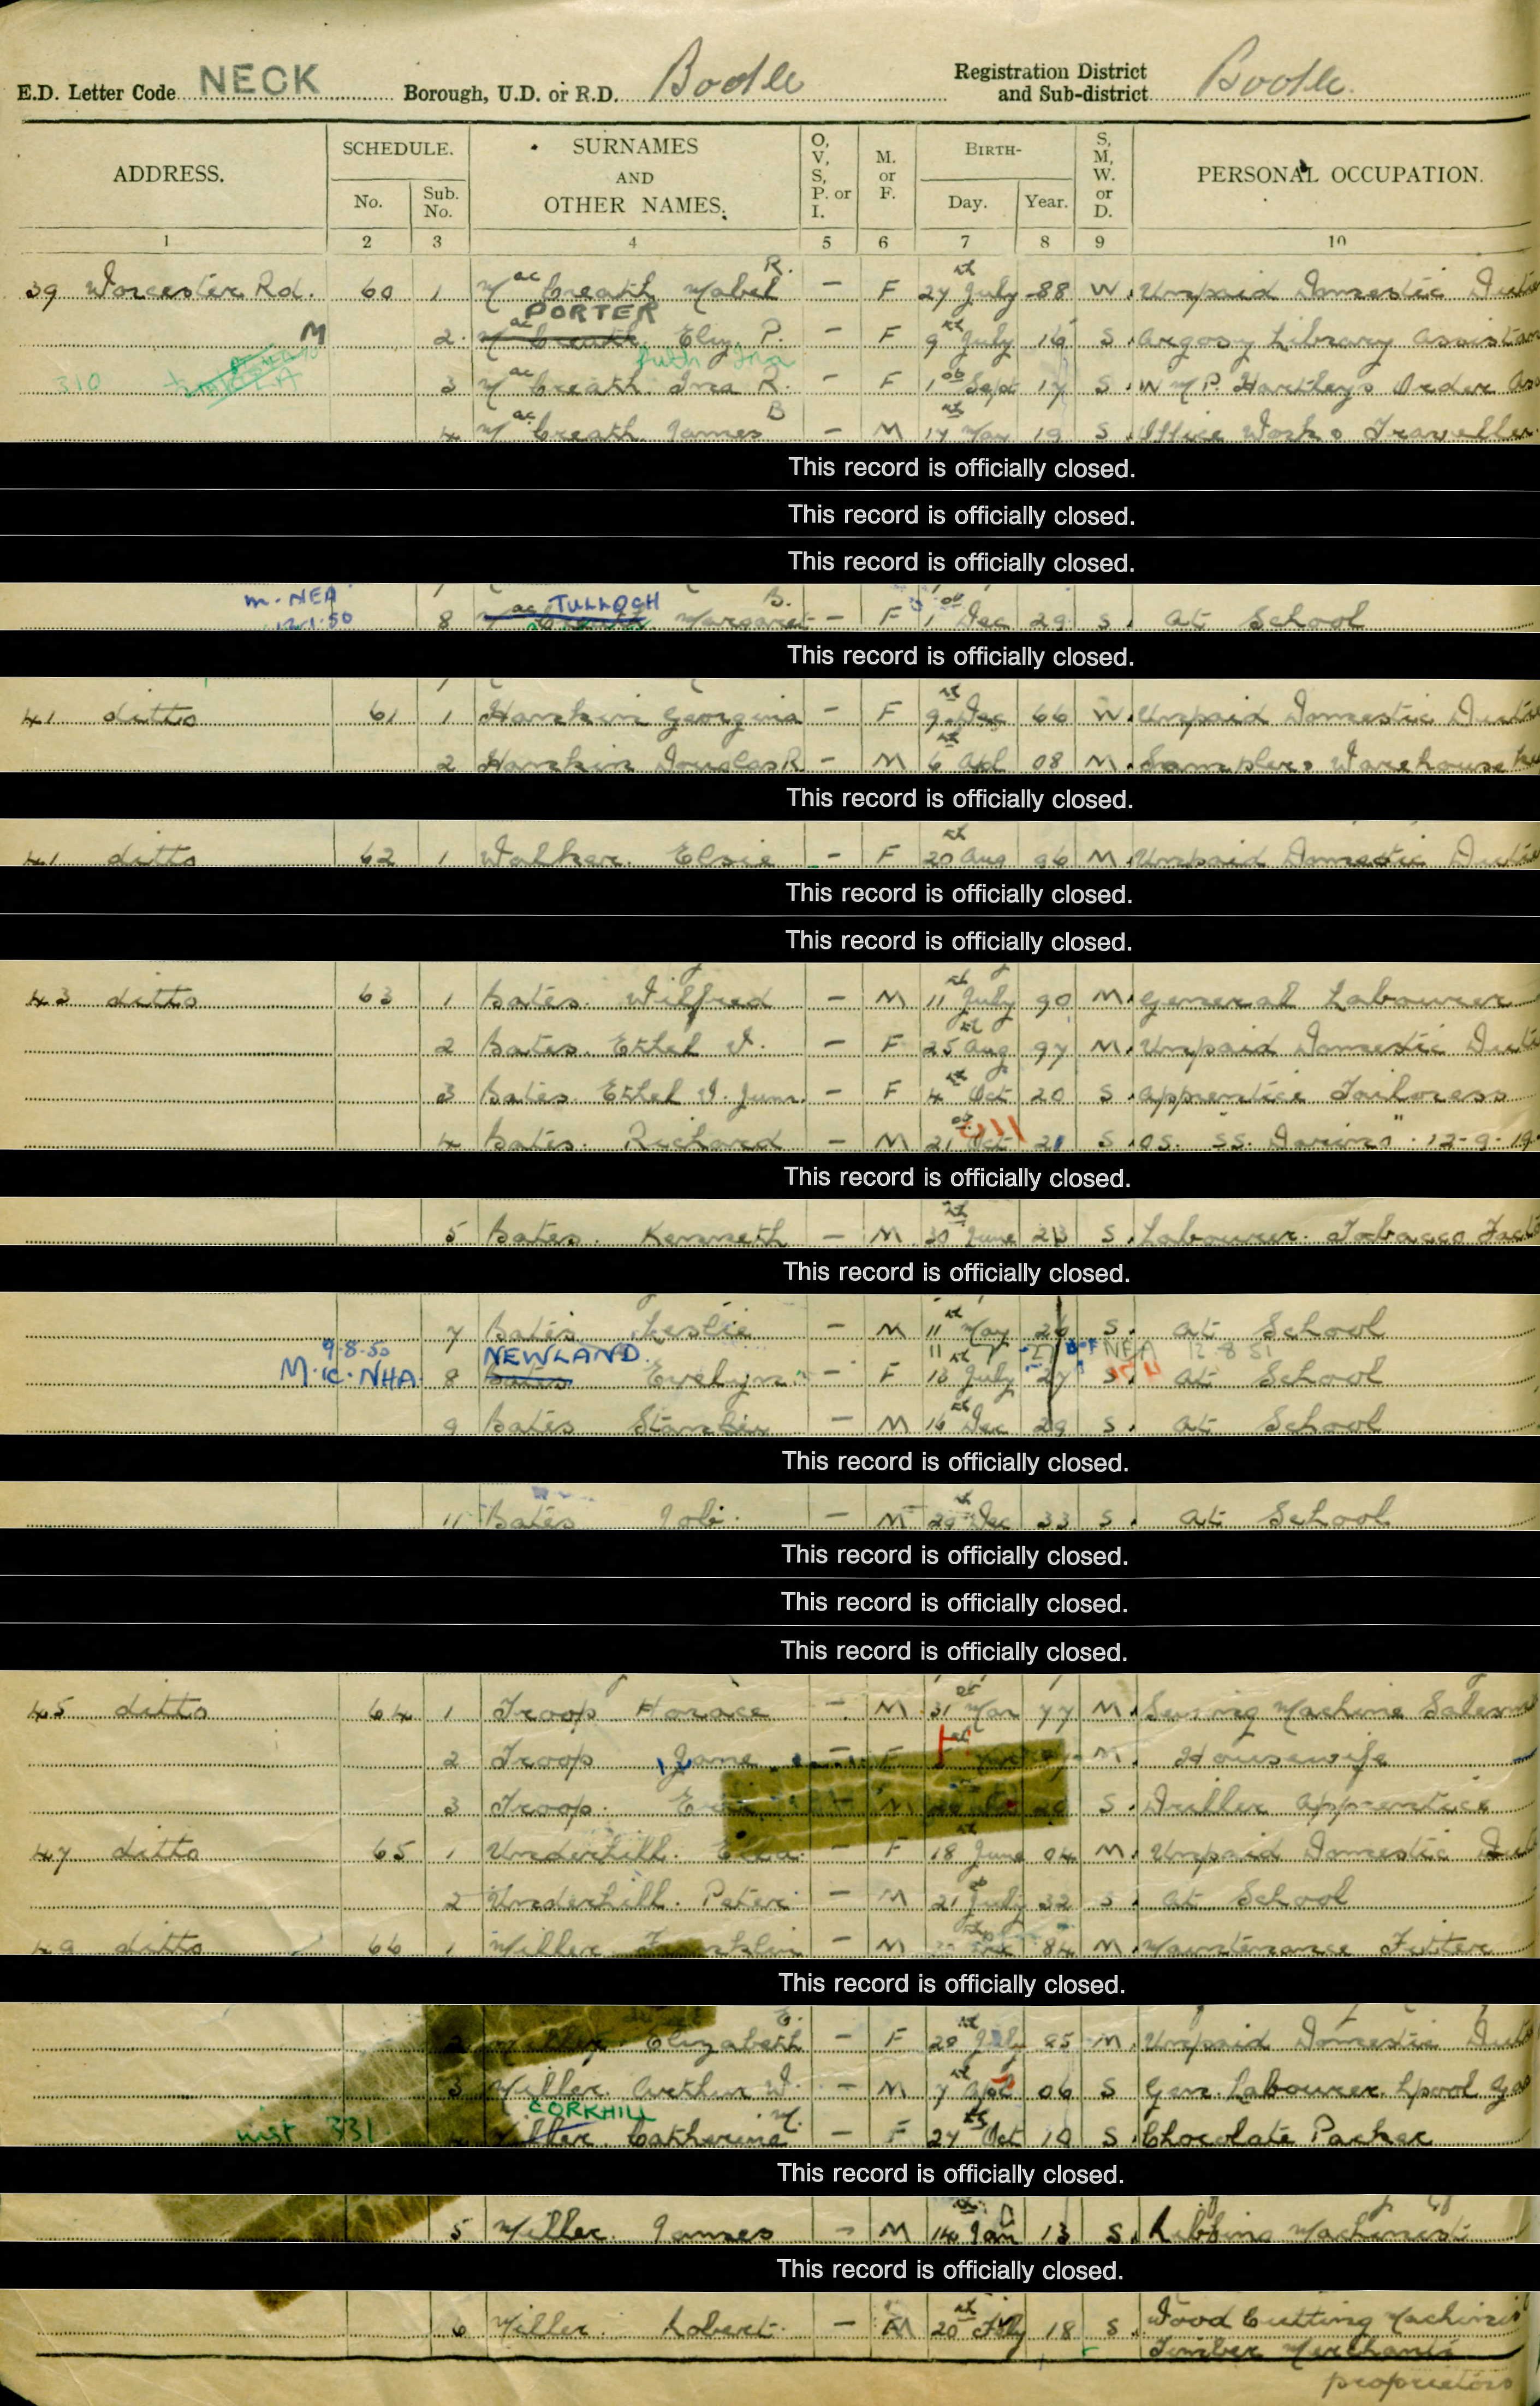 E.D. Letter Code NECK Borough, U.D. or R.D. Bootle Registration District and Sub-district Bootle.
ADDRESS. SCHEDULE. No. Sub. No. SURNAMES AND OTHER NAMES. O, V, S, P. or I. M. or F. BIRTH- Day. Year. S, M, W. or D. PERSONAL OCCUPATION.
1 2 3 4 5 6 7 8 9 10
39 Worcester Rd. 60 1 Mac Creath Mabel R. – F 27th July 88 W. Unpaid Domestic Dutie
PORTER
M 2. Mac Creath Eliz. P. – F 9th July 16 S. Argosy Library Assistan
Ruth Ina
310 3 Mac Creath Ina R. – F 1st Sept 17 S. W M P. Hartleys Order Ass
4 Mac Creath James B – M 17th May 19 S. Office Work & Traveller
This record is officially closed.
This record is officially closed.
This record is officially closed.
m. NEA TULLOCH
12.1.50 8 Mac Creath Margaret B. – F 1st Dec 29 S. At School
This record is officially closed.
41 ditto 61 1 Hankin Georgina – F 9th Dec 66 W. Unpaid Domestic Dutie
2 Hankin Douglas R – M 6th Apl 08 M. Samplers Warehouse
This record is officially closed.
41 ditto 62 1 Walker. Elsie – F 20th Aug 96 M. Unpaid Domestic Dutie
This record is officially closed.
This record is officially closed.
43 ditto 63 1 Bates. Wilfred – M 11th July 90 M. General Labourer
2 Bates. Ethel V. – F 25th Aug 97 M. Unpaid Domestic Duti
3 Bates. Ethel V. Junr. – F 4th Oct 20 S. Apprentice Tailoress
4 Bates. Richard – M 21st Oct 21 S. OS. SS. Darino" 12-9-19
This record is officially closed.
5 Bates. Kenneth – M 30th June 23 S. Labourer. Tobacco Fact
This record is officially closed.
7 Bates Leslie – M 11th May 26 S. At School
9-8-50 NEWLAND. 11 27 NEA 12 8 51
M.ic. NHA 8 Bates Evelyn – F 13th July 27 S. At School
9 Bates Stanley – M 16th Dec 29 S. At School
This record is officially closed.
11 Bates Job. – M 29th Dec 33 S. At School
This record is officially closed.
This record is officially closed.
This record is officially closed.
45 ditto 64 1 Troop Horace – M 31st Mar 77 M. Sewing Machine Salesm
2 Troop Jane – F M. Housewife
3 Troop. – M S. Driller Apprentice
47 ditto 65 1 Underhill. – F 18th June 04 M. Unpaid Domestic Dut
2 Underhill. Peter – M 21st July 32 S At School
49 ditto 66 1 Miller Franklin – M 84 M. Maintenance Fitter
This record is officially closed.
2 Miller Elizabeth E. – F 28th July 85 M. Unpaid Domestic Dutie
3 Miller. Arthur W. – M 7th 06 S Gen. Labourer. Lpool Gas
CORKHILL
inst 331. 4 Miller. Catherine M. – F 27th Oct 10 S. Chocolate Packer
This record is officially closed.
5 Miller. James – M 14th Jan 13 S. Machinist
This record is officially closed.
6 Miller. Robert. – M 20th 18 S. Wood Cutting Machinist
Timber Merchants
proprietors